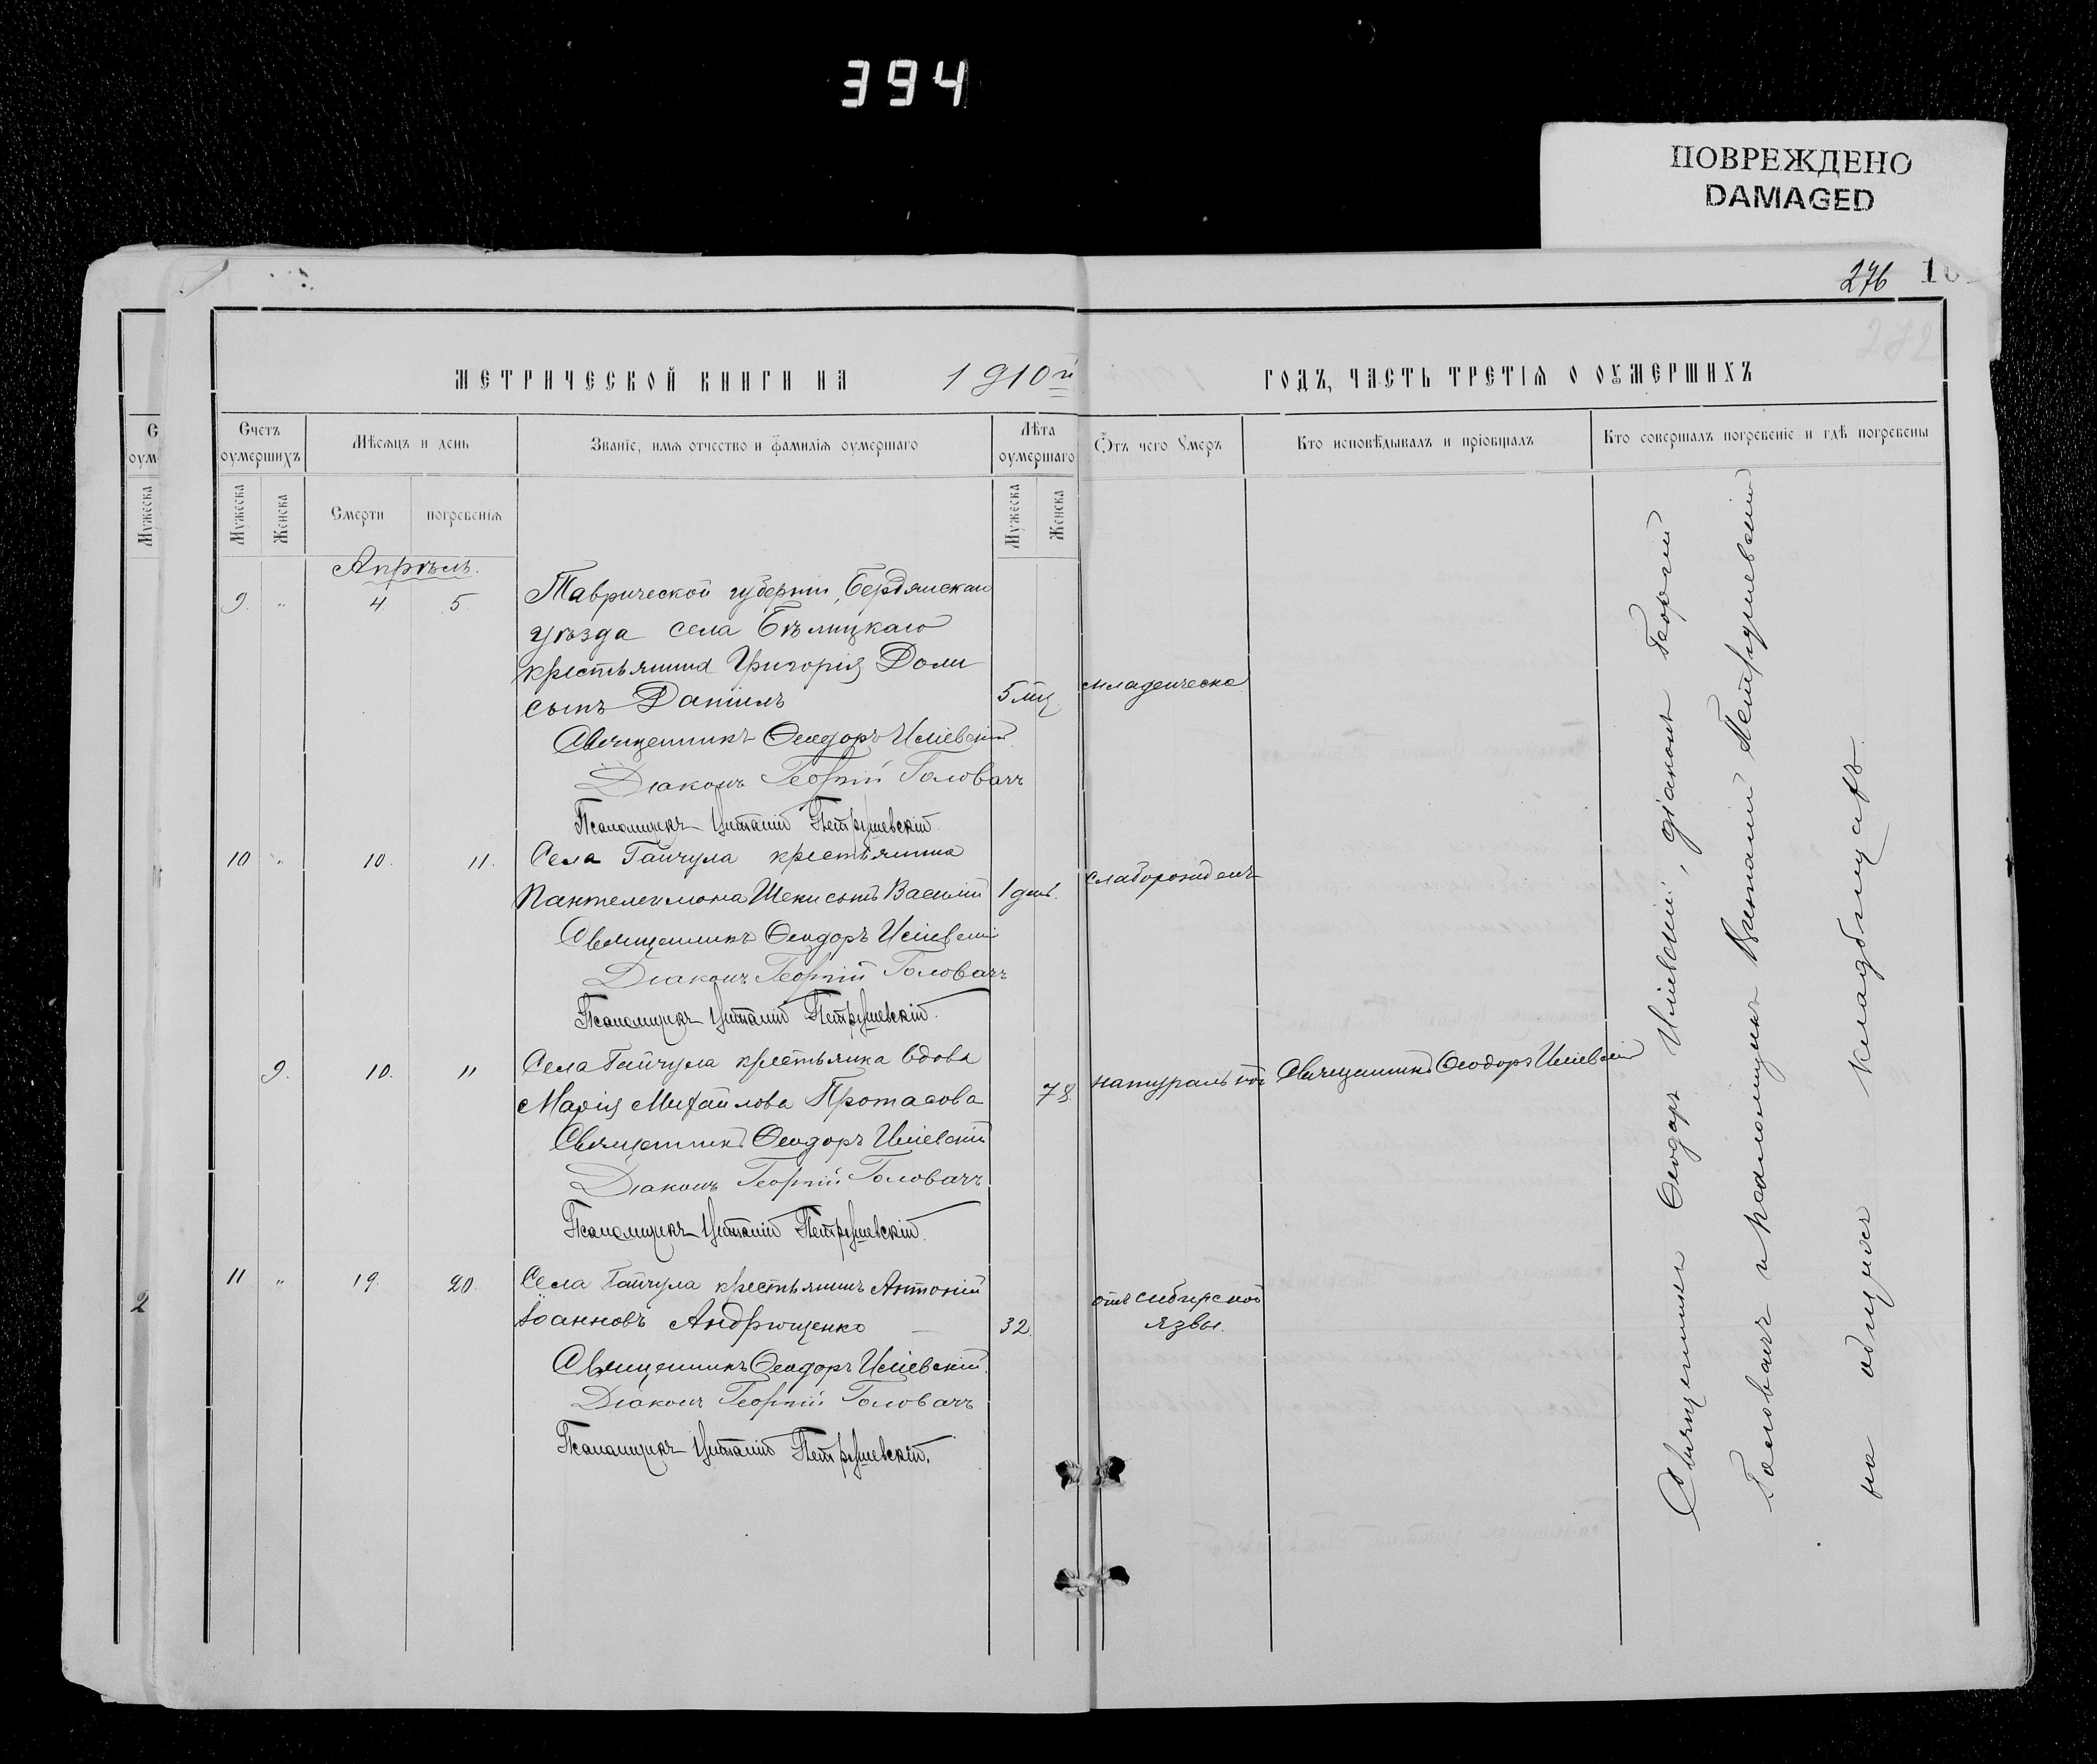 394
ПОВРЕЖДЕНО
DAMAGED
276
272
МЕТРИЧЕСКОЙ КНИГИ НА 1910й ГОДЪ, ЧАСТЬ ТРЕТІЯ О ОУМЕРШИХЪ
Счетъ оумершихъ
Мѣсяцъ и день
Званіе, имя отчество и фамилія оумершаго
Лѣта оумершаго
Отъ чего умеръ
Кто исповѣдывалъ и пріобщалъ
Кто совершалъ погребеніе и гдѣ погребены
Мужеска
Женска
Смерти
погребенія
Мужеска
Женска
Апрѣль.
9. " 4 5. Таврической губерніи, Бердянскаго
уѣзда села Бѣлицкаго
крестьянина Григорія Доли
сынъ Даніилъ 5 мц. младенческа
Священникъ Ѳеодоръ
Діаконъ Георгій Головачъ
Псаломщикъ Виталій Петрушевскій.
10 " 10. 11. Села Гайчула крестьянина
Пантелеимона Шеки сынъ Василій 1 день. слаборожденъ
Священникъ Ѳеодоръ
Діаконъ Георгій Головачъ
Псаломщикъ Виталій Петрушевскій.
9. 10. 11 Села Гайчула крестьянка вдова
Марія Михайлова Протасова 78. натуральной Священникъ Ѳеодоръ
Священникъ Ѳеодоръ
Діаконъ Георгій Головачъ
Псаломщикъ Виталій Петрушевскій.
11 " 19. 20. Села Гайчула крестьянинъ Антоній
Іоанновъ Андрющенко 32. отъ сибирской
язвы.
Священникъ Ѳеодоръ
Діаконъ Георгій Головачъ
Псаломщикъ Виталій Петрушевскій.
Священникъ Ѳеодоръ діаконъ Георгій
Головачъ и псаломщикъ Виталій Петрушевскій
на общемъ кладбищѣ.
2